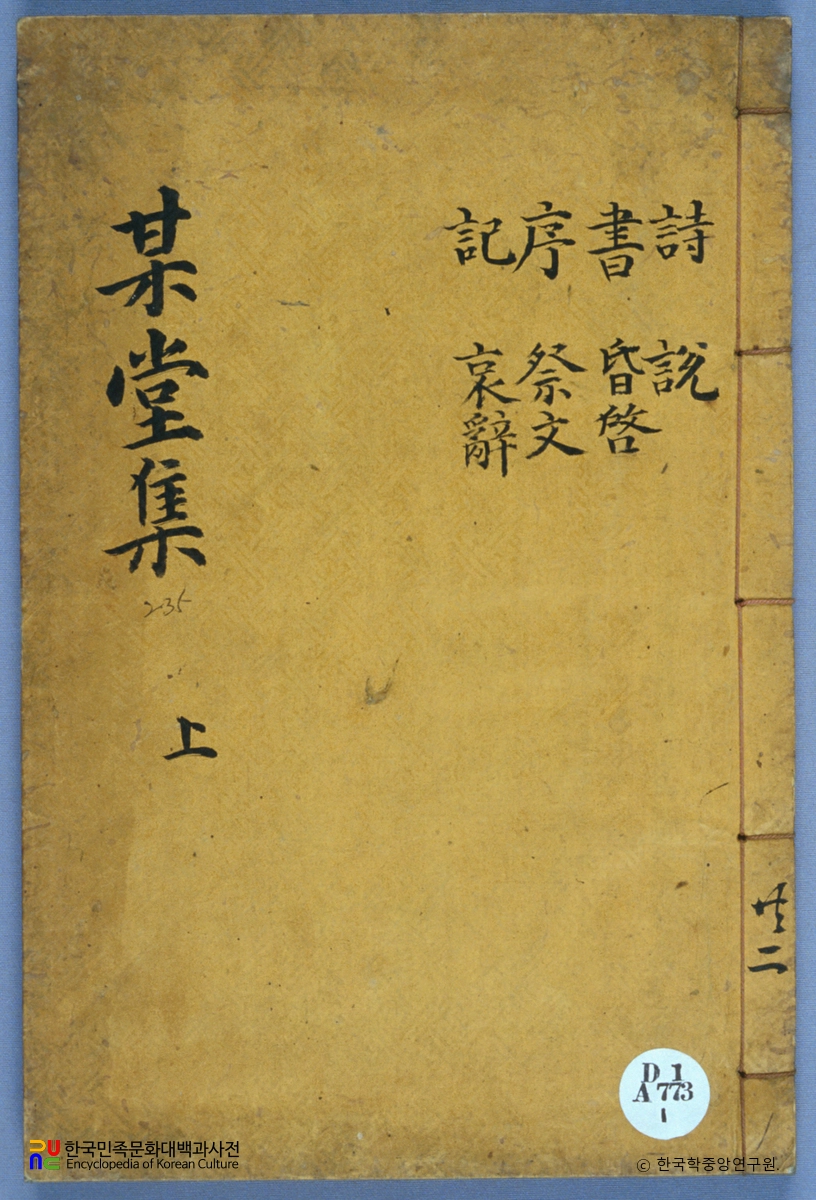 詩 說
書 昏啓
序 祭文
記 哀辭
某堂集 上
235
共二
D 1
A 773
1
한국민족문화대백과사전
Encyclopedia of Korean Culture
© 한국학중앙연구원.